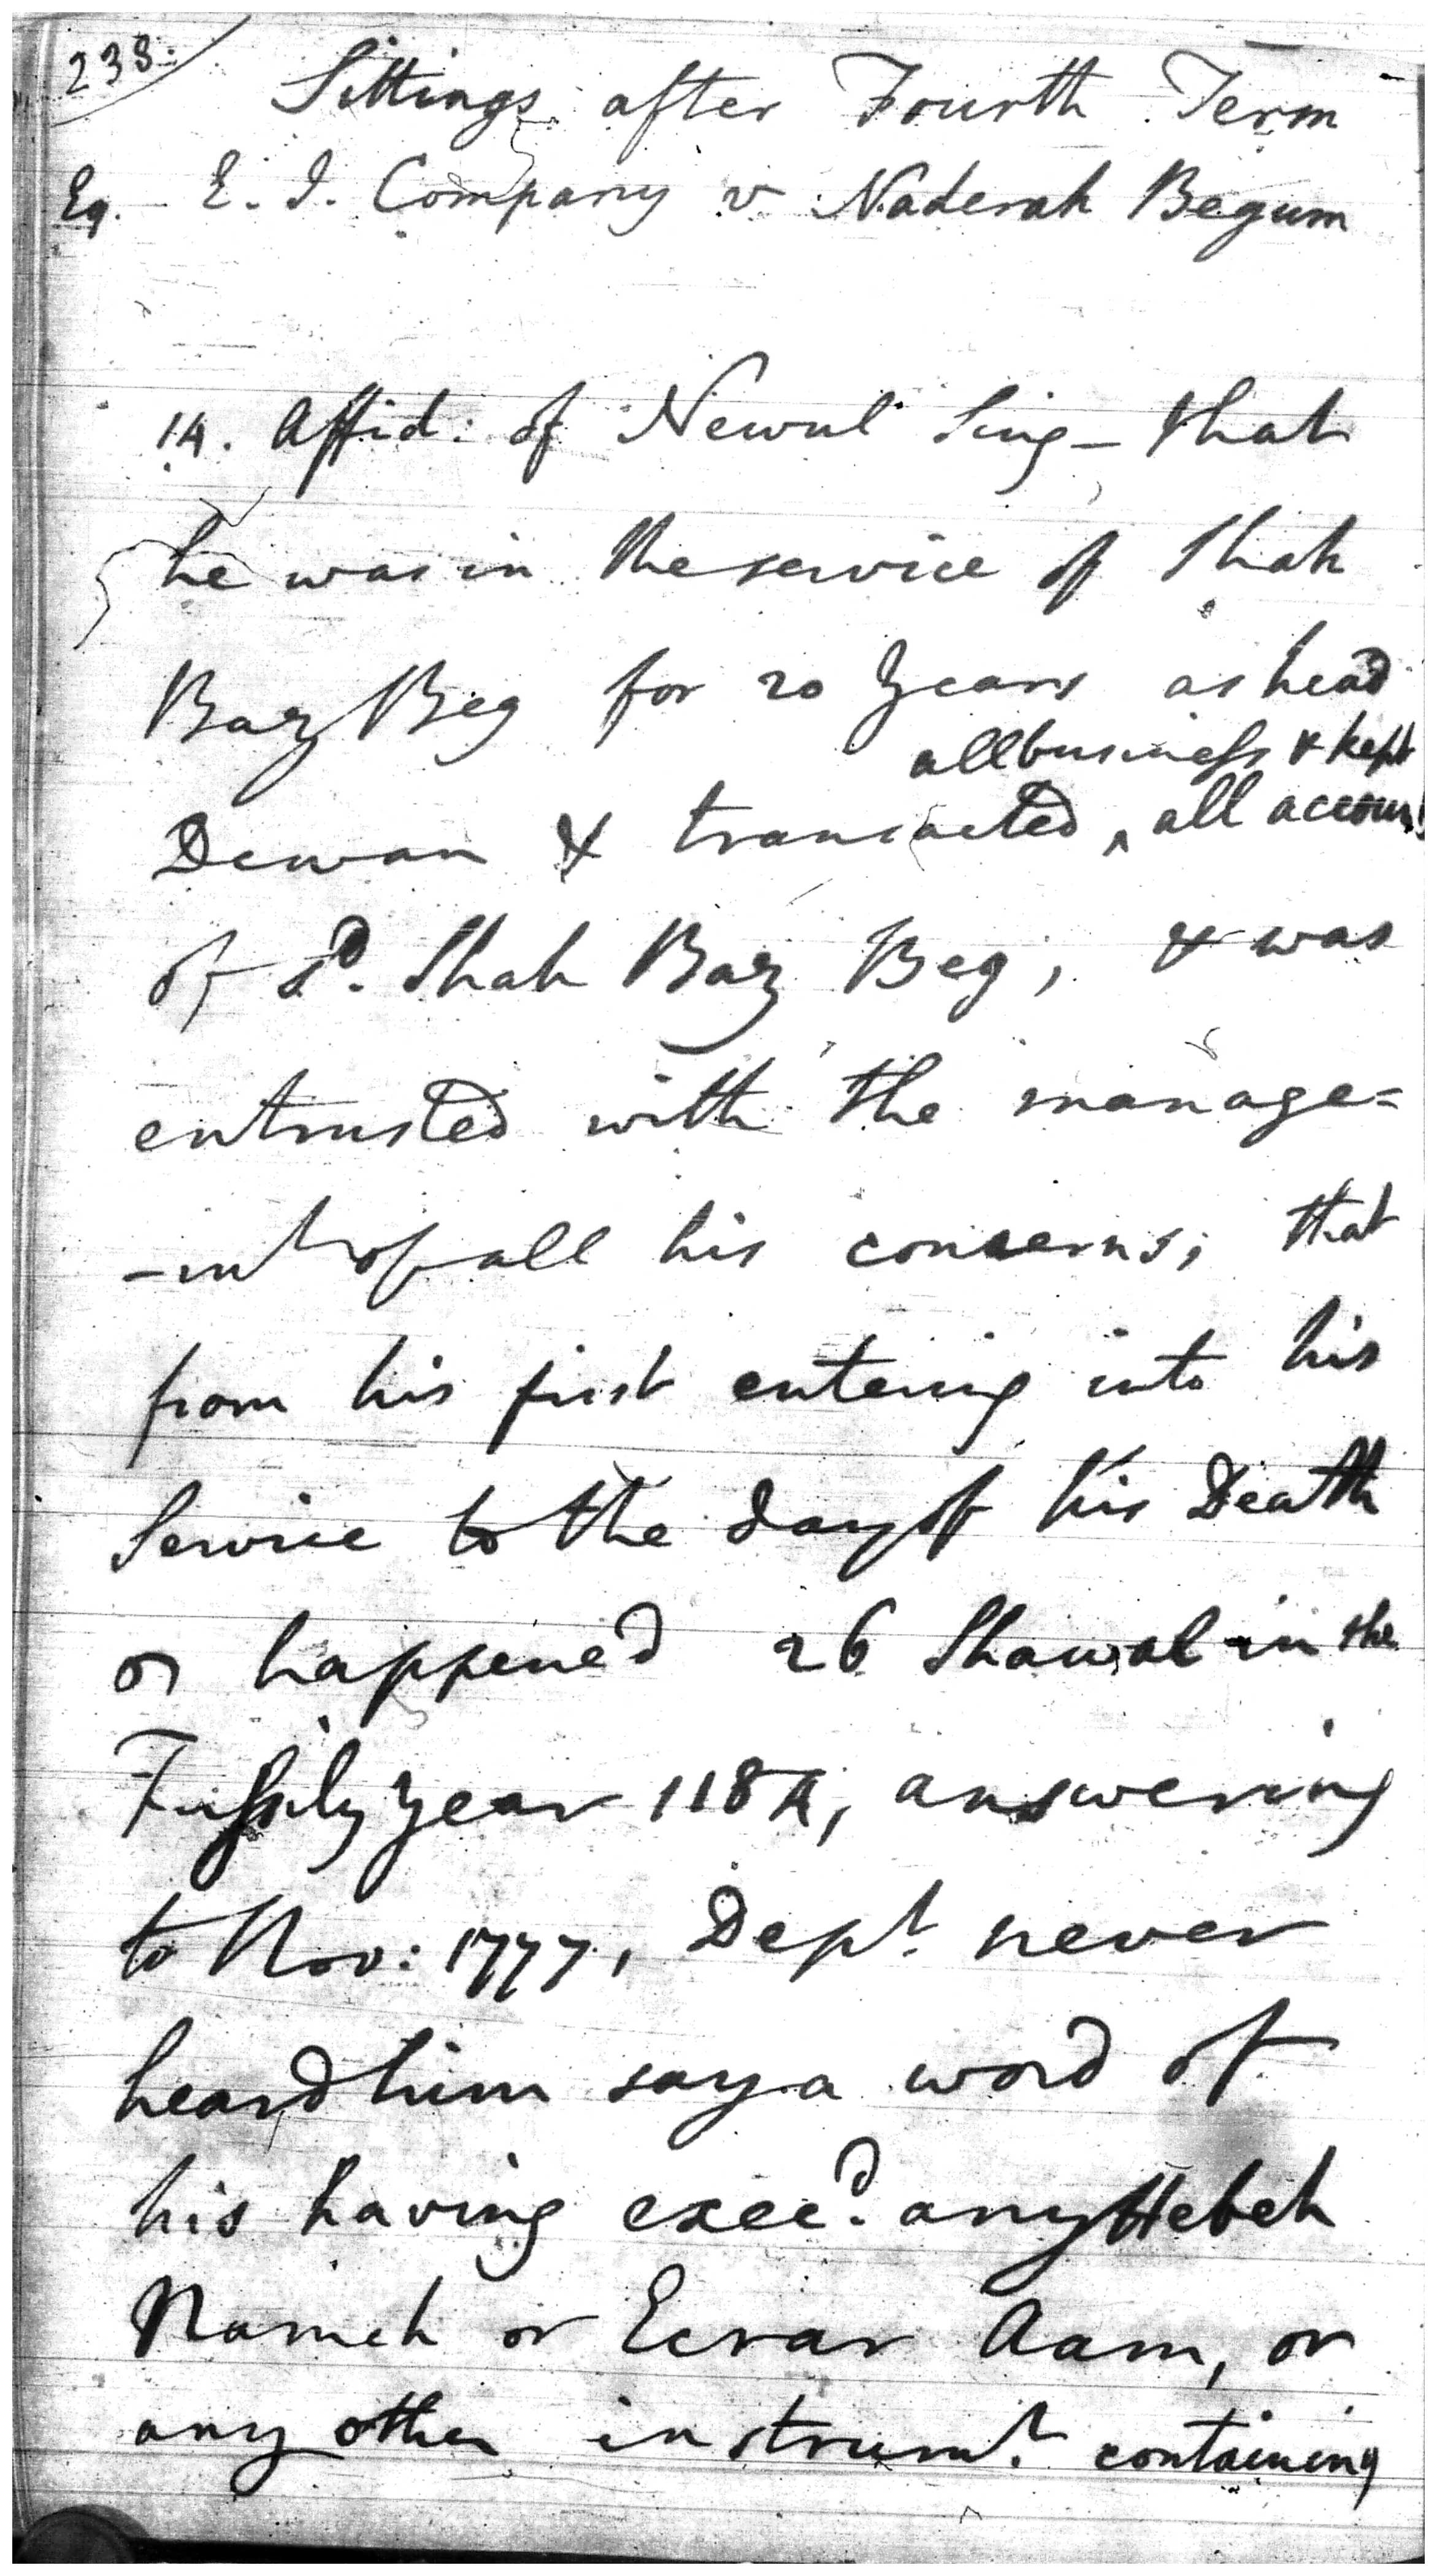 238:
Sittings after Fourth Term
Eq. E. I. Company v Naderah Begum
14. Affid: of Newul Sing – that
he was in the service of Shah
Baz Beg for 20 Years as head
all business & kept
Dewan & transacted ^ all accounts
of sd. Shah Baz Beg; & was
entrusted with the manage=
-mt of all his concerns; that
from his first entering into his
Service to the day of his Death
happened 26 Shawal in the
Fussuly year 1184, answering
to Nov: 1777, Dept. never
heard him say a word of
his having execd. any Hebeh
Nameh or Ecrar Aam, or
any other instrumt. containing